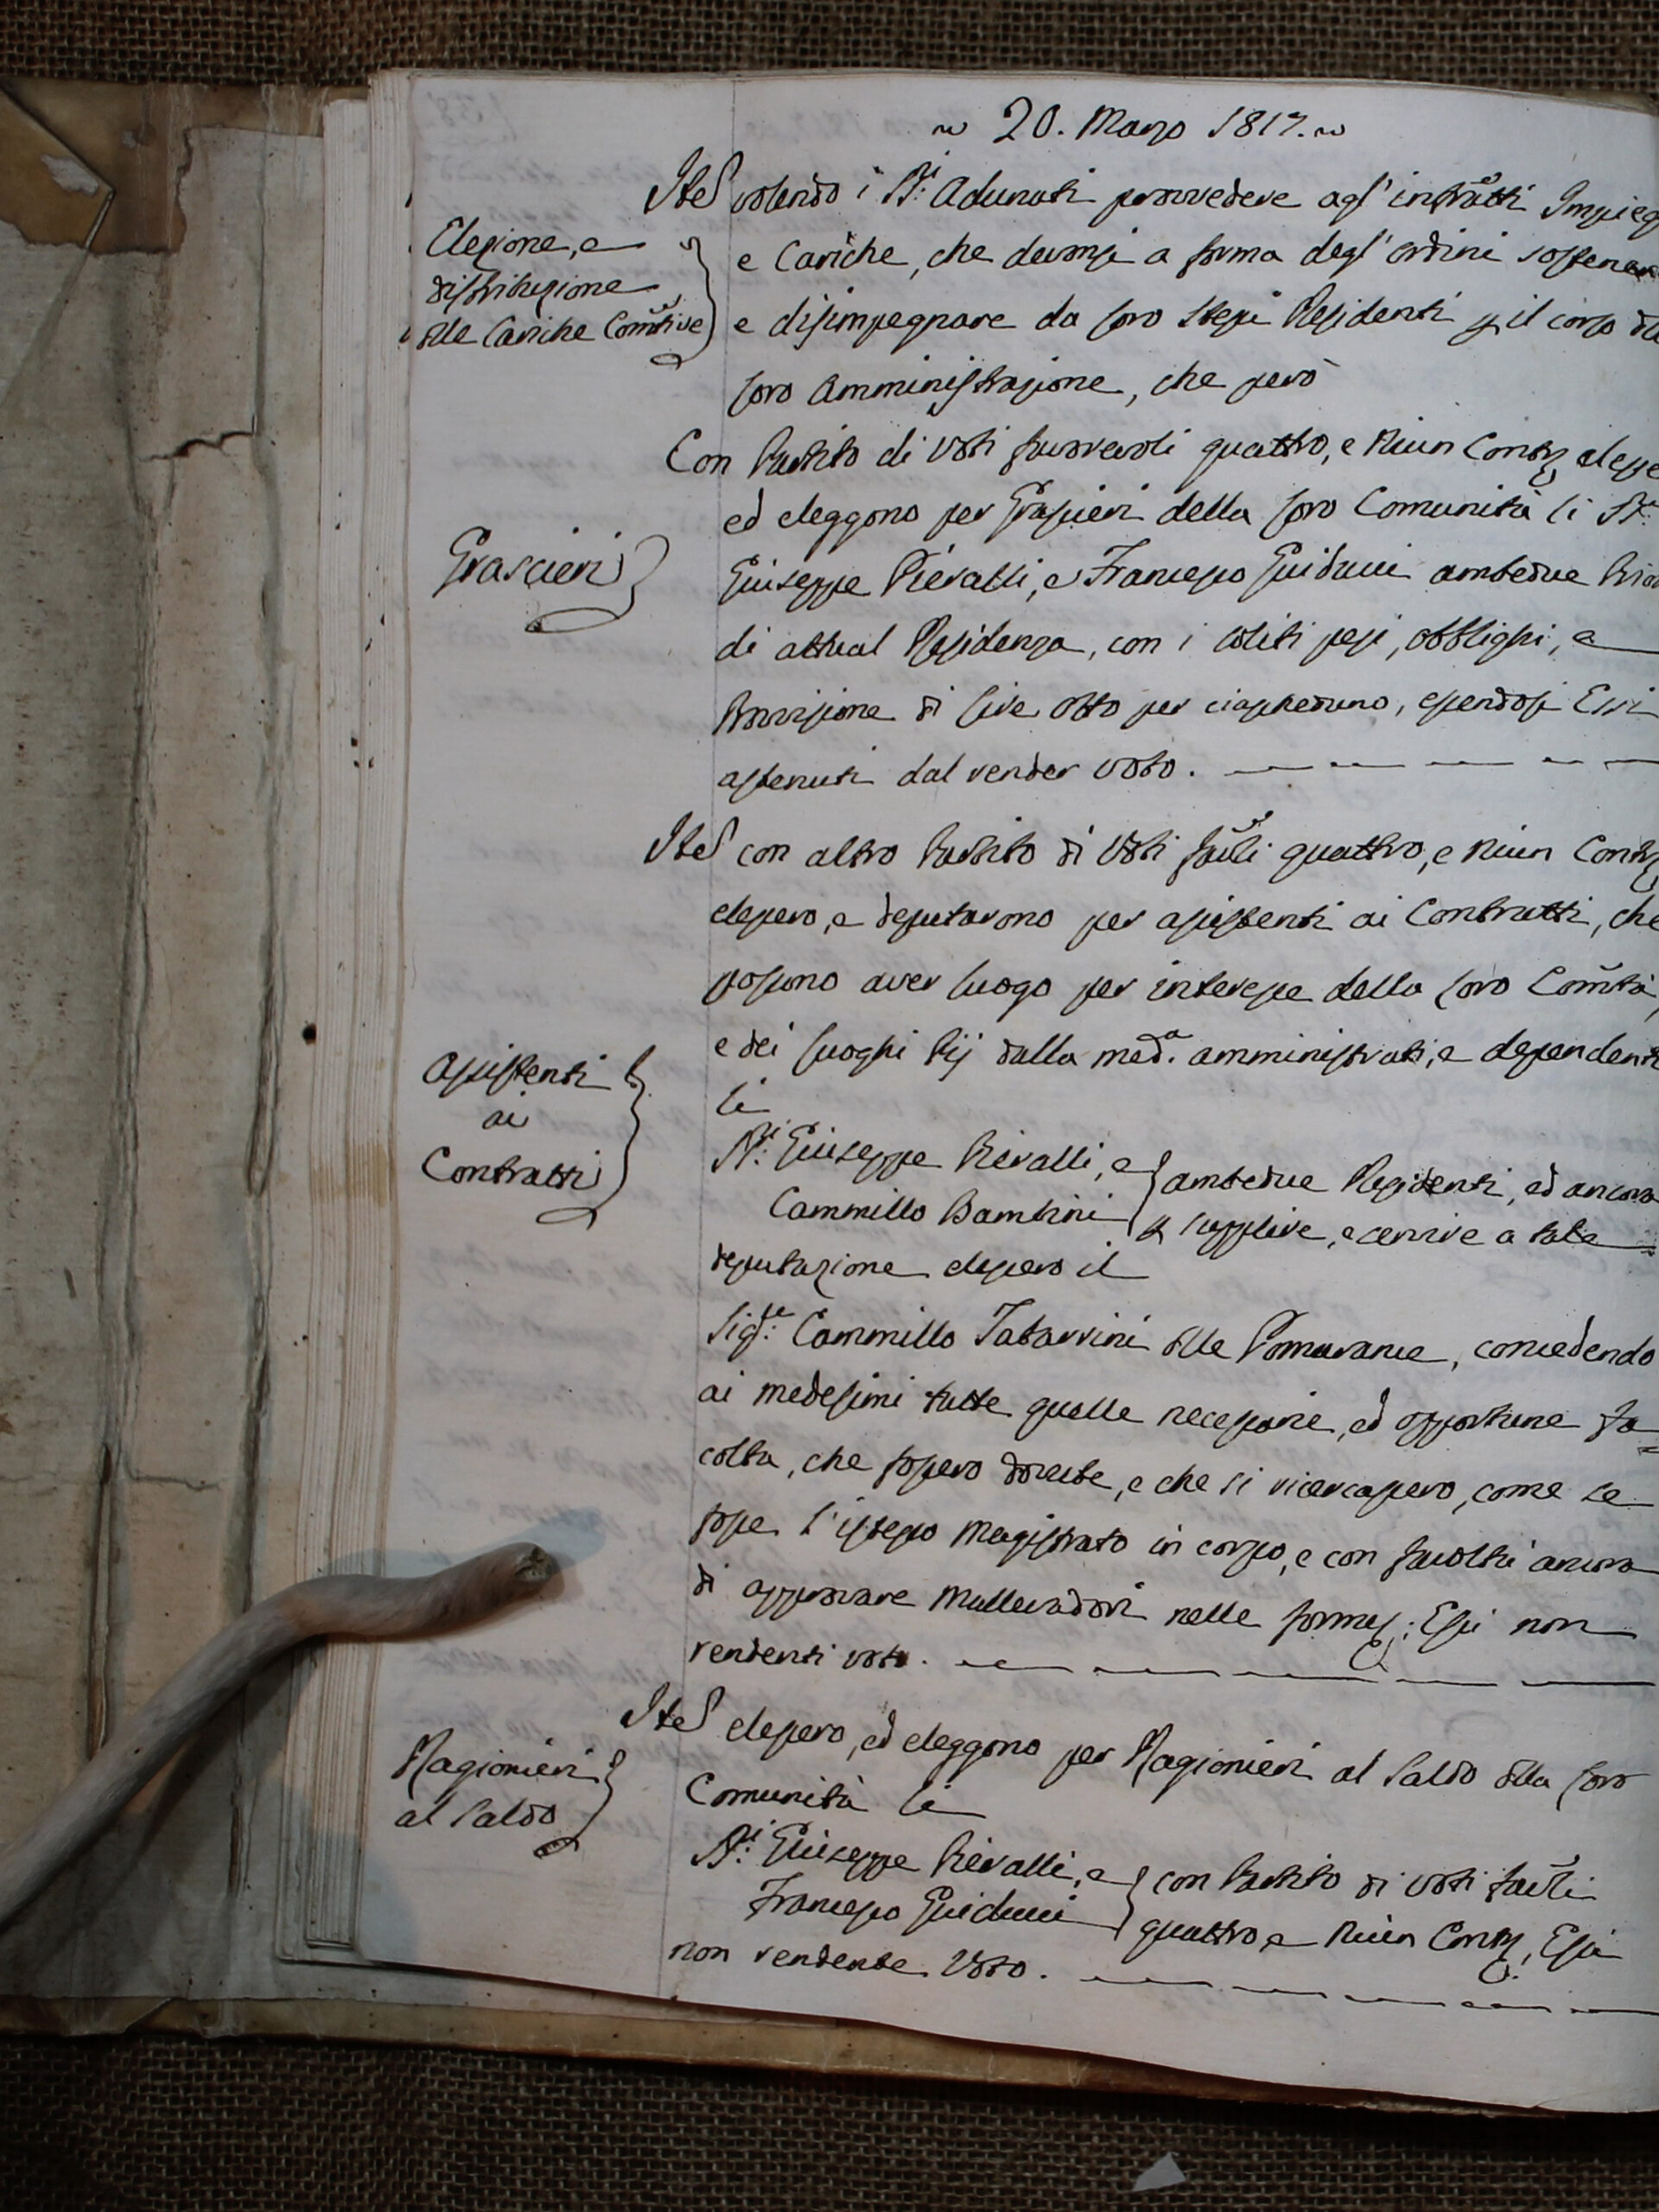 ~ 20. Marzo 1817. ~
Item volendo i SS.ri Adunati provvedere agl' infrãtti Impieg
e Cariche, che devonsi a forma degl' ordini sostener
e disimpegnare da loro stessi Residenti p il corso di
loro Amministrazione, che però
Elezione, e
distribuzione
delle Cariche Com̃tive
Con Partito di Voti favorevoli quattro, e Niun Contrº elesse
ed eleggono per Grascieri della loro Comunità li SS.ri
Giuseppe Pievalli, e Francesco Guiducci ambedue Prior
di attual Residenza, con i soliti pesi, obblighi, e
Provvisione di Lire Otto per ciascheduno, essendosi Essi
astenuti dal render Voto.
Grascieri
Item con altro Partito di Voti favñli quattro, e Niun Contrº
elessero, e deputarono per assistenti ai Contratti, che
possono aver luogo per interesse della loro Com̃tà,
e dei Luoghi Pij dalla med.a amministrati, e dependenti
li
SS.ri Giuseppe Pievalli, e
Cammillo Bambini
ambedue Residenti, ed ancora
p supplire, e servire a tale
deputazione elessero il
Assistenti
ai
Contratti
Sig.re Cammillo Tabarrini delle Pomarance, concedendo
ai medesimi tutte quelle necessarie, ed opportune fa=
coltà, che fossero dovute, e che si ricercassero, come se
fosse l'istesso Magistrato in corpo, e con facoltà ancora
di approvare Mallevadori nelle forme; Essi non
rendenti voto.
Item elessero, ed eleggono per Ragionieri al Saldo della loro
Comunità li
SS.ri Giuseppe Pievalli, e
Francesco Guiducci
con Partito di Voti favñli
quattro, e Niun Contrº, Essi
non rendente Voto.
Ragionieri
al Saldo